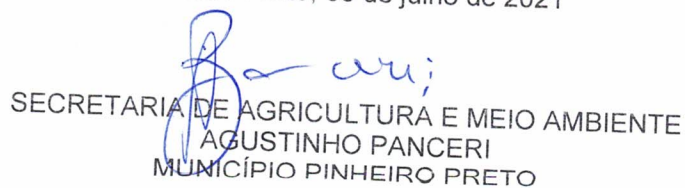 de julho de 2021
SECRETARIA DE AGRICULTURA E MEIO AMBIENTE
AGUSTINHO PANCERI
MUNICÍPIO PINHEIRO PRETO